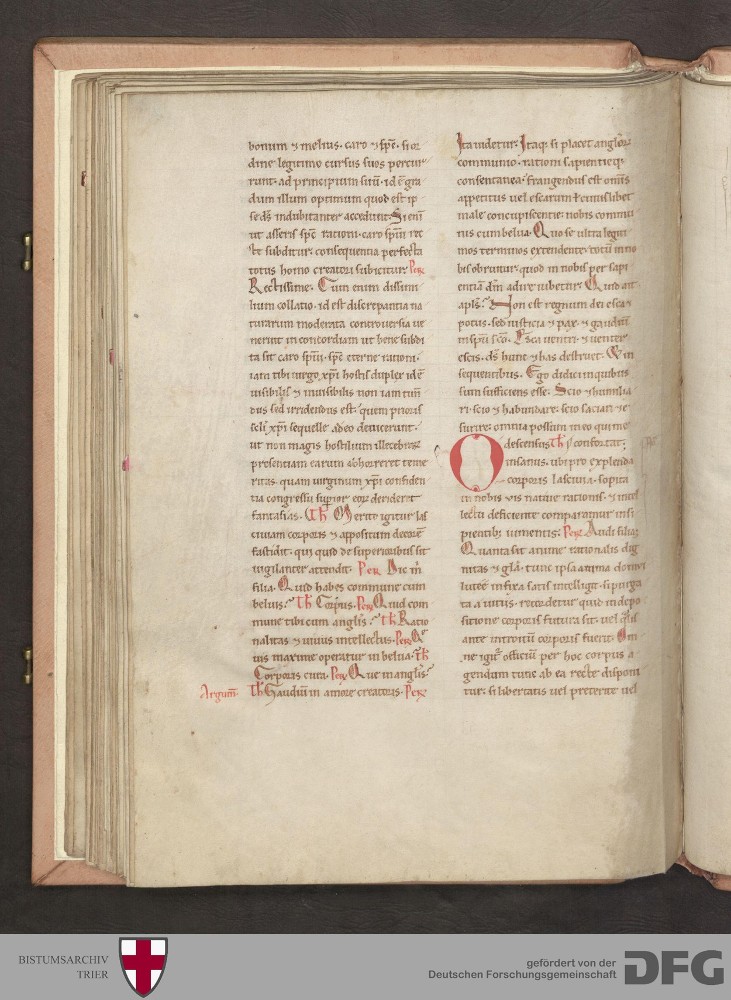 bonum ⁊ melius. caro ⁊ sp̅c̅. si or
dine legitimo cursus suos percur
runt. ad principium suu̅. id e̅ gra
dum illum optimum quod est ip
se d̅s̅ indubitanter accedunt. Si eni̅
ut asseris sp̅c̅ rationi. caro sp̅ui rec
te subditur. consequentia perfecta
totus homo creatori subicitur. Per
Rectissime. Cum enim dissimi
lium collatio. id est discrepantia na
turarum moderata controversia ue
nerit in concordiam ut bene subdi
ta sit caro sp̅ui. sp̅c̅ eterne rationi.
iam tibi uirgo xp̅i hostis duplex id e̅
uisibilis ⁊ inuisibilis non iam timen
dus sed irridendus est. quem prioris
scli xp̅i sequelle adeo deuicerunt.
ut non magis hostilium illecebras
presentiam earum abhorreret teme
ritas. quam uirginum xp̅i confiden
tia congressu superior eor̅ derideret
fantasias. Th̅ Merito igitur las
ciuiam corporis ⁊ appositum decore̅
fastidit. qui quid de superioribus sit
uigilanter attendit. Per Dic m̅
filia. Quid habes commune cum
beluis. Th̅ Corpus. Per Quid com
mune tibi cum anglis. Th̅ Ratio
nalitas ⁊ uiuus intellectus. Per
tus maxime operatur in belua. Th̅
Corporis cura. Per Que in anglis.
Argum̅ Th̅ Gaudium in amore creatoris. Per
Ita uidetur. Itaq; si placet anglor̅
communio. rationi sapientieq;
consentanea. frangendus est omnis
appetitus uel escarum uel cuiuslibet
male concupiscentie. nobis commu
nis cum belua. Quo se ultra legiti
mos terminos extendente. totu̅ in no
bis obruitur. quod in nobis per sapi
entia̅ d̅m̅ adire iubetur. Quid ait
apl̅s. Non est regnum dei esca ⁊
potus. sed iusticia ⁊ pax. ⁊ gaudiu̅
in sp̅u sc̅o. Esca uentri. ⁊ uenter
escis. d̅s̅ hunc ⁊ has destruet. Et in
sequentibus. Ego didici in quibus
sum sufficiens esse. Scio ⁊ humilia
ri. scio ⁊ habundare. scio saciari ⁊ e
surire. omnia possum in eo qui me
O descensus Th̅ confortat.
insanus. ubi pro explenda
corporis lasciuia. sopita
in nobis uis natiue rationis. ⁊ intel
lectu deficiente comparamur insi
pientib; iumentis. Per Audi filia.
Quanta sit anime rationalis dig
nitas ⁊ gl̅a. tunc ipsa anima domui
lutee infixa satis intelligit. si purga
ta a uitiis. recordetur quid in depo
sitione corporis futura sit. uel qualis
ante introitu̅ corporis fuerit. Om
ne igit̅ officiu̅ per hoc corpus a
gendum tunc ab ea recte disponi
tur. si libertatis uel preterite uel
BISTUMSARCHIV
TRIER
gefördert von der
Deutschen Forschungsgemeinschaft
DFG